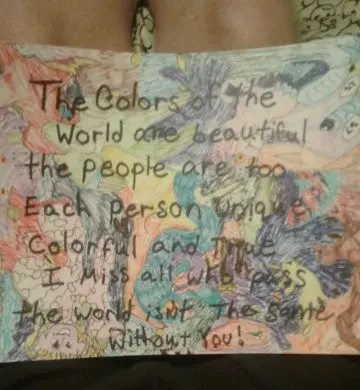 The Colors of the
World are beautiful
the people are too
Each person unique
Colorful and True
I Miss all who pass
the world isn't the same
Without You!